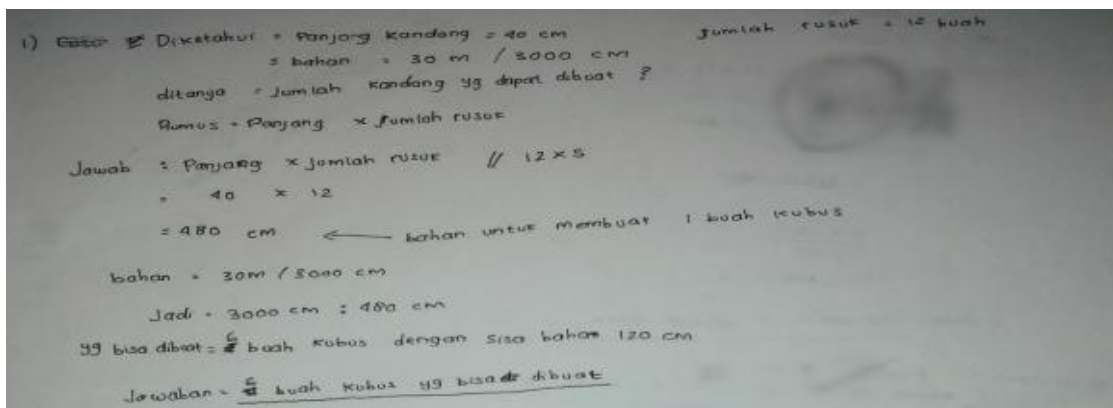 1) Diketahui = Panjang kandang = 40 cm jumlah rusuk = 12 buah
= bahan = 30 m / 3000 cm
ditanya = Jumlah kandang yg dapat dibuat ?
Rumus = Panjang x Jumlah rusuk
Jawab : Panjang x jumlah rusuk // 12 x s
= 40 x 12
= 480 cm ← bahan untuk membuat 1 buah kubus
bahan = 30m / 3000 cm
Jadi = 3000 cm : 480 cm
yg bisa dibuat = 6 buah kubus dengan sisa bahan 120 cm
Jawaban = 6 buah kubus yg bisa dibuat